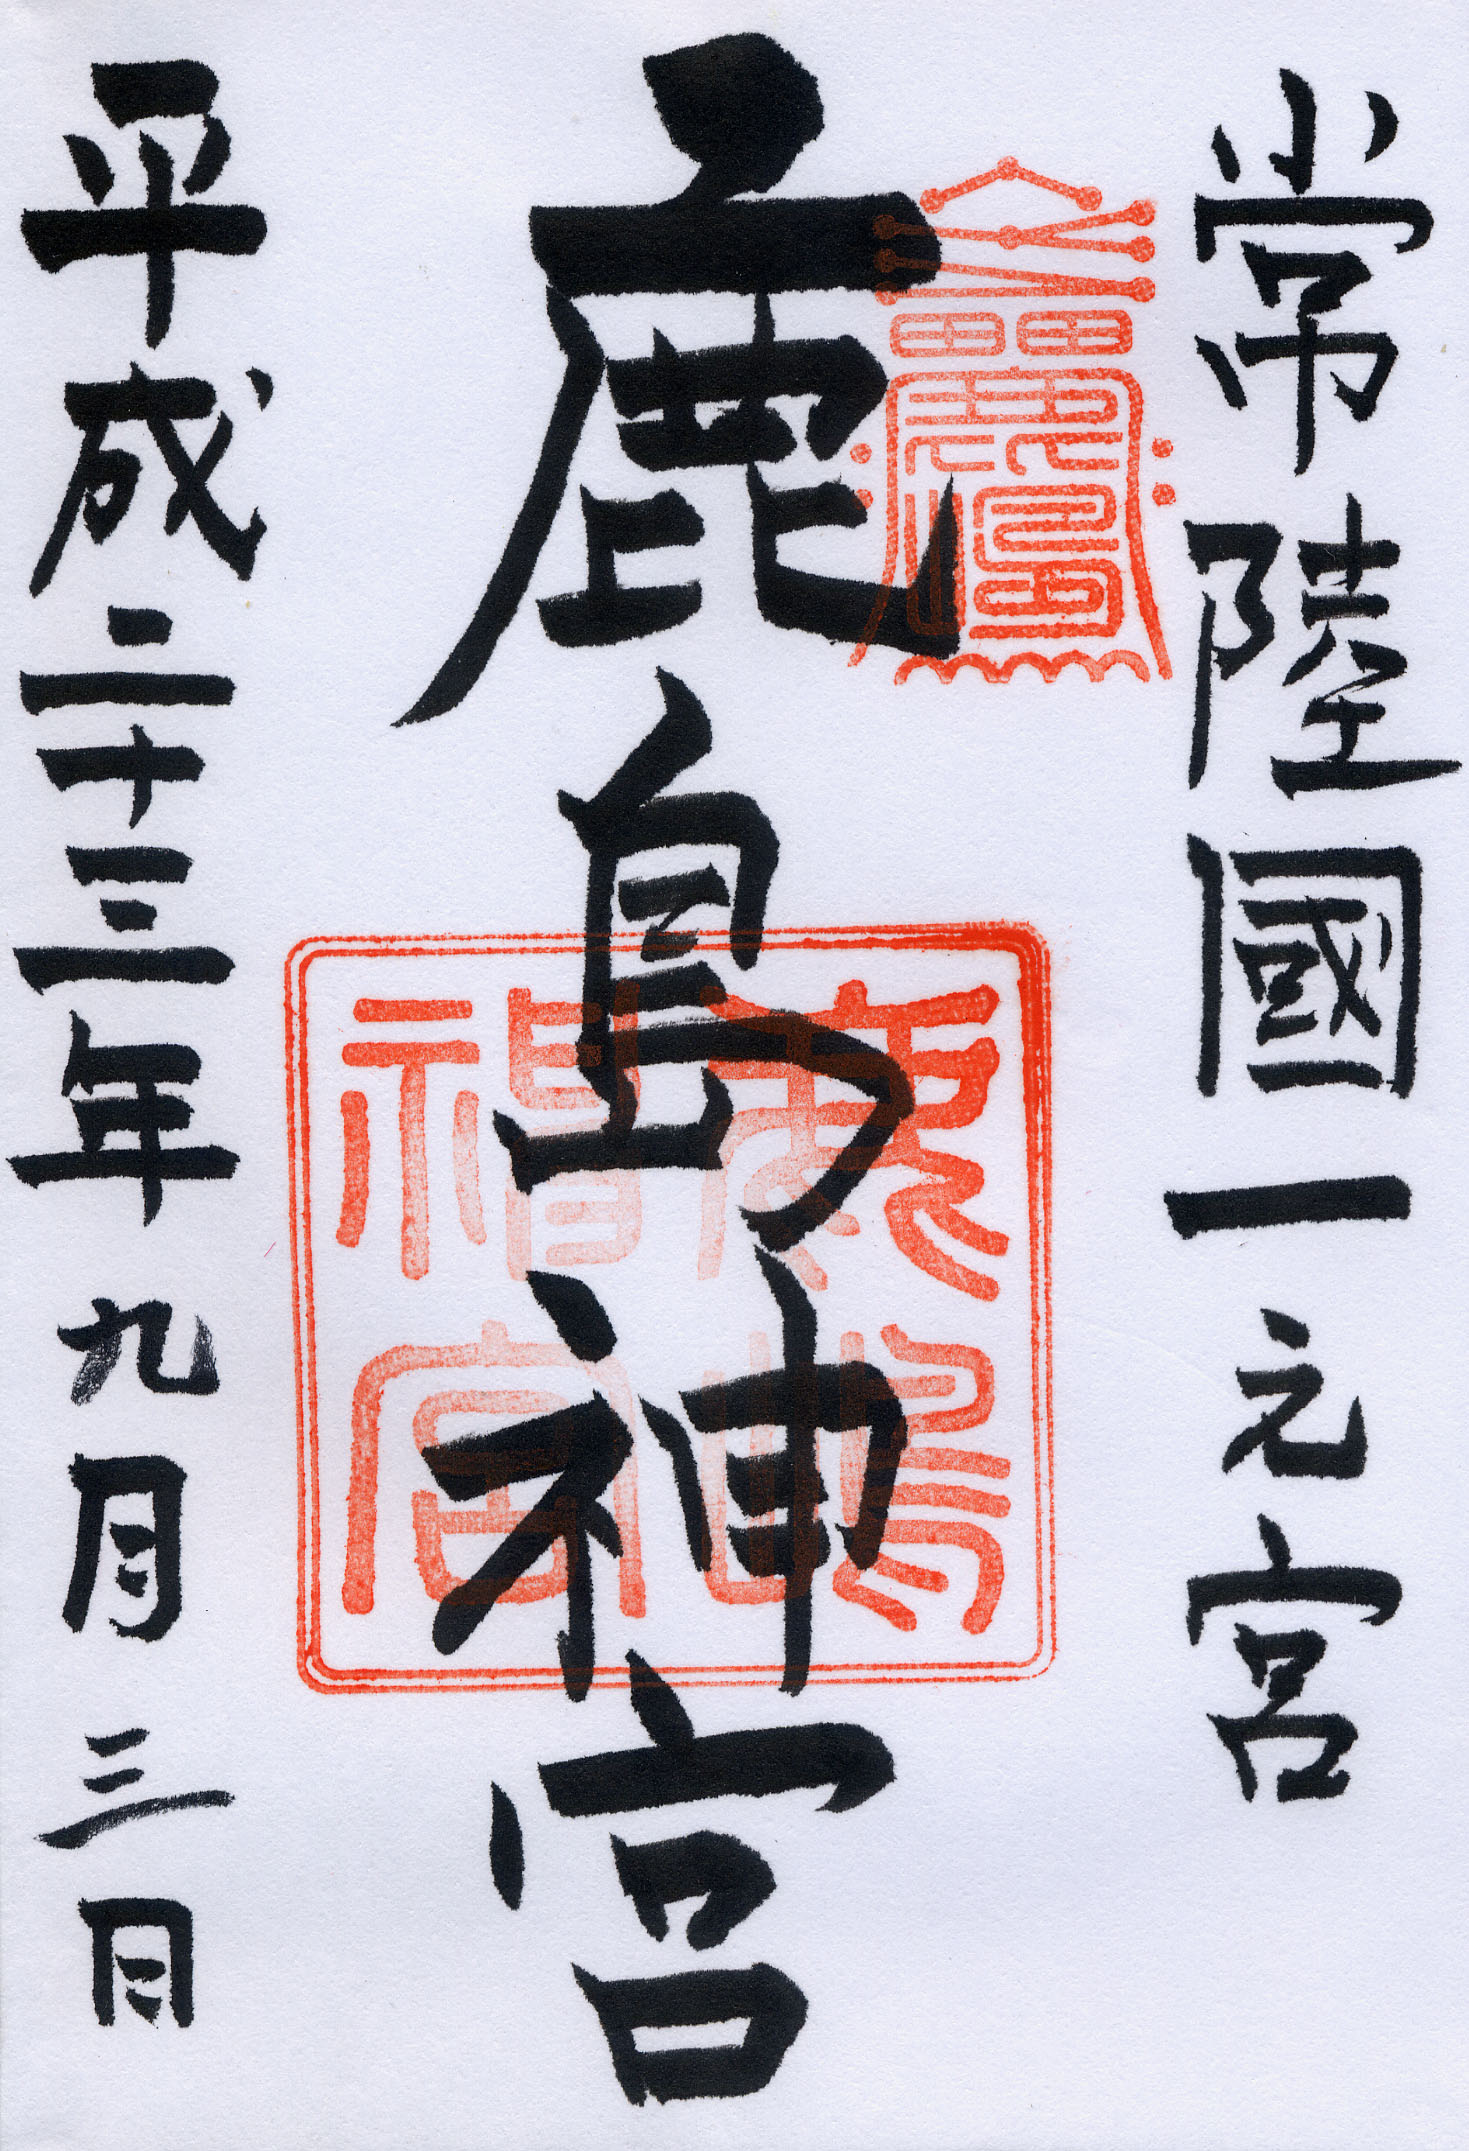 常陸國一之宮
鹿島神宮
平成二十三年九月三日
鹿嶋神宮